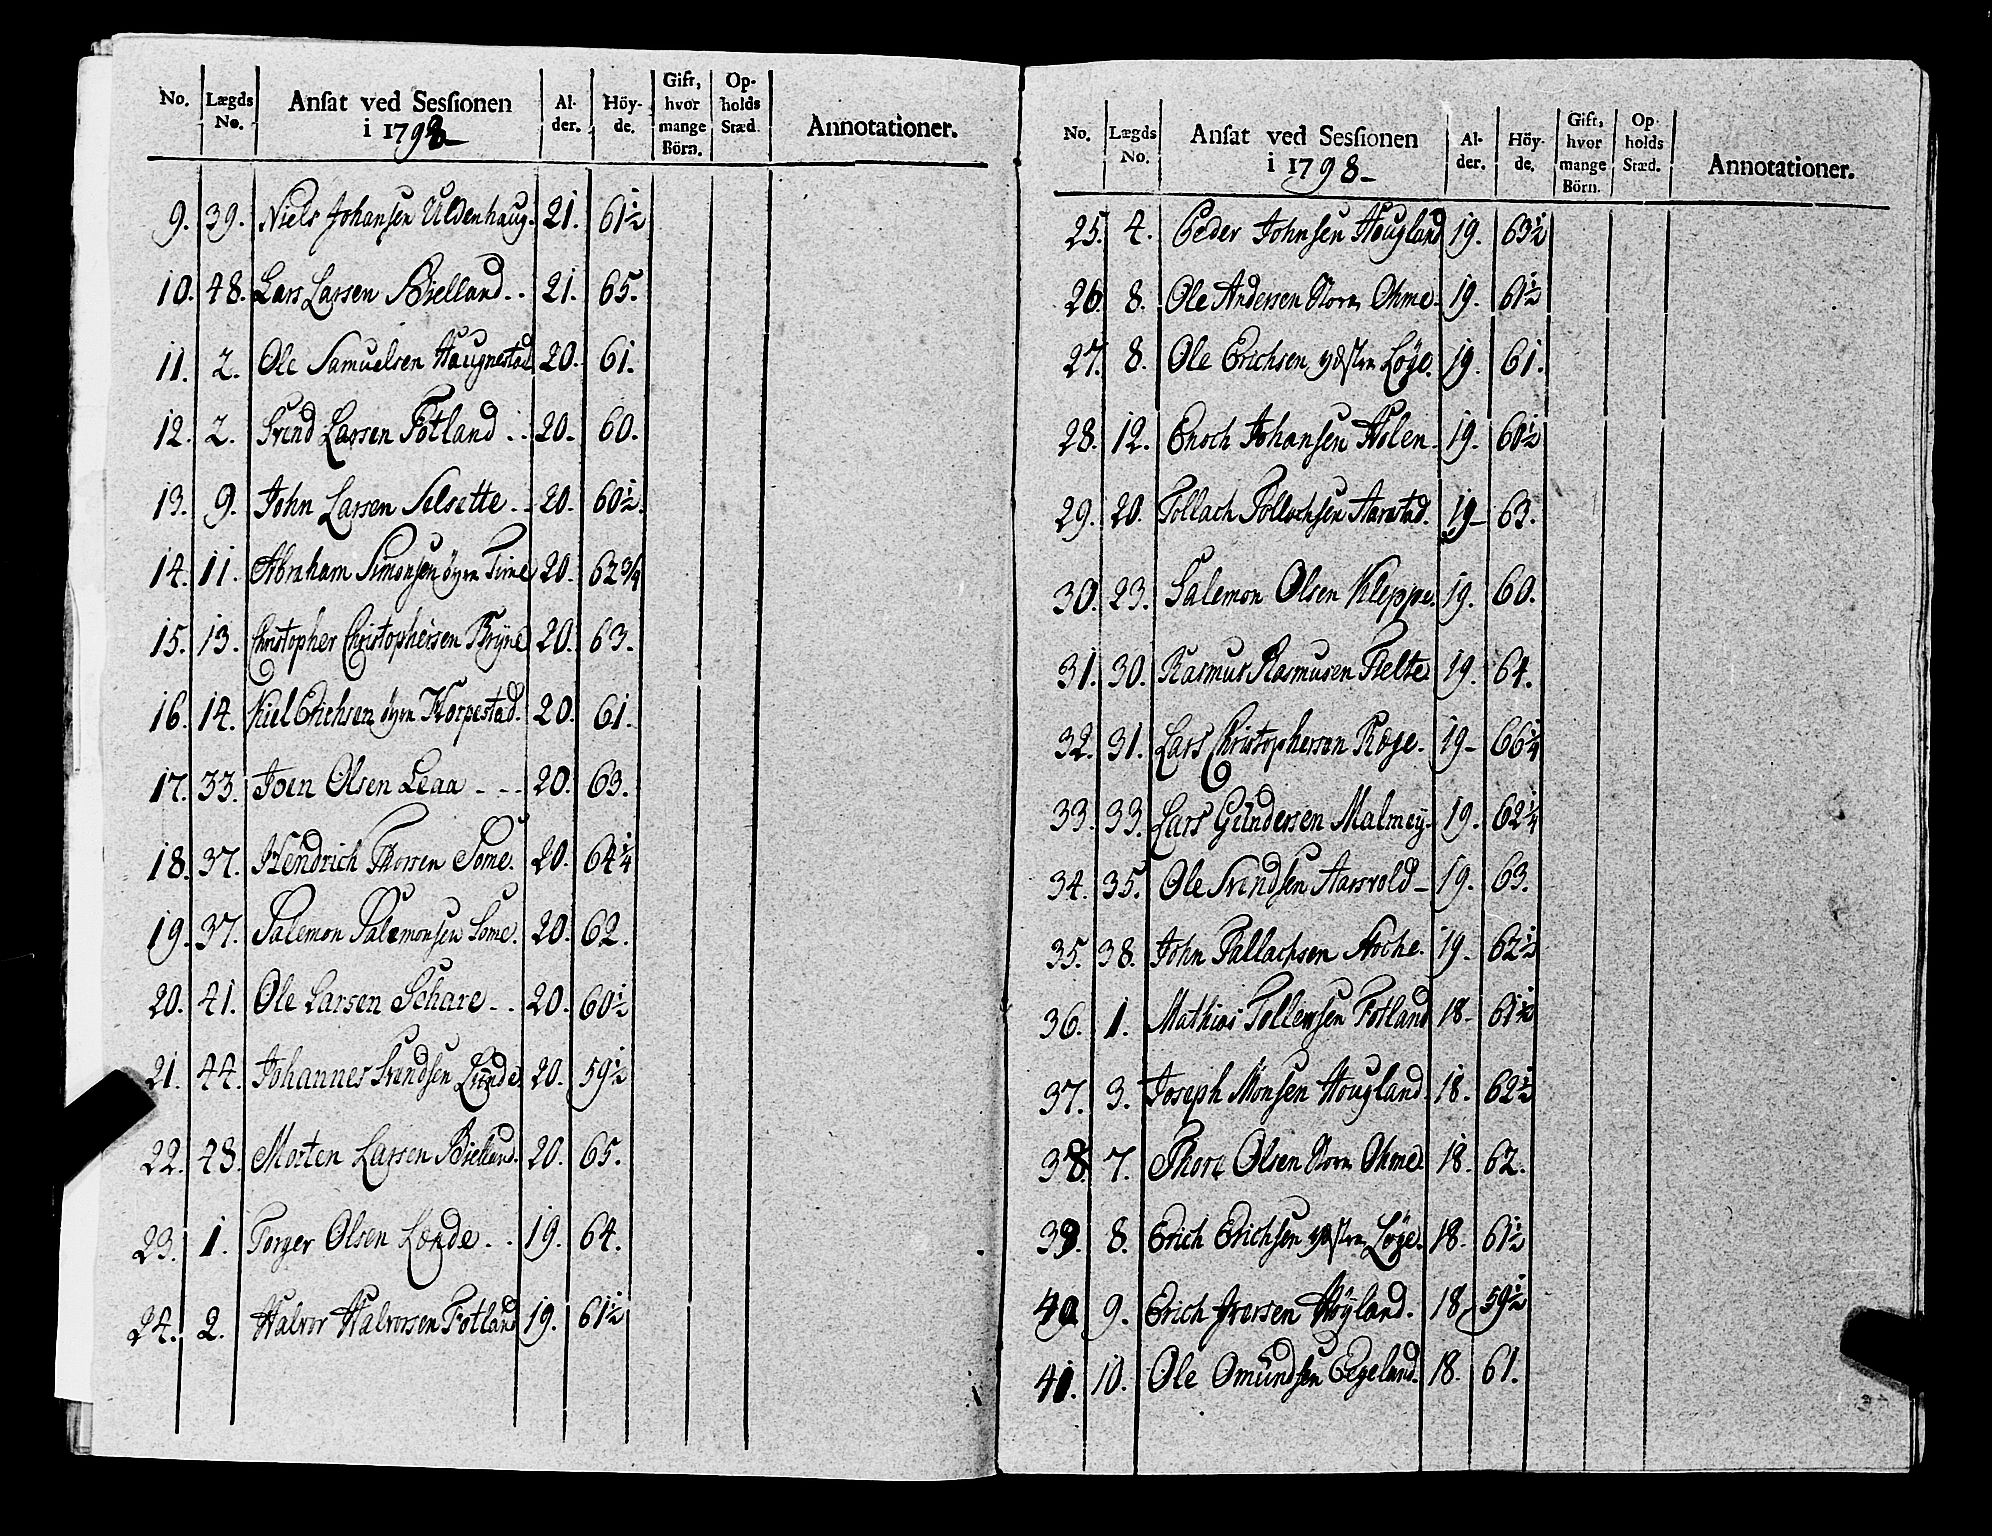 No. Lægds No. Ansat ved Sessionen i 1798 Alder. Höyde. Gift, hvor mange Börn. Opholds Stæd. Annotationer.
9. 39. Niels Johansen Uldenhaug. 21. 61½
10. 48. Lars Larsen Bielland.. 21. 65.
11. 2. Ole Samuelsen Haugnestad 20. 61.
12. 2. Svend Larsen Fotland .. 20. 60.
13. 9. John Larsen Selsette. 20. 60½.
14. 11. Abraham Simonsen øvre Time 20. 62¾
15. 13. Christopher Christophersen Bryne 20. 63.
16. 14. Kiel Erichsen øvre Horpestad. 20. 61.
17. 33. Joen Olsen Leaa - - - 20. 63.
18. 37. Hendrich Thorsen Some. 20. 64¼
19. 37. Salemon Salemonsen Some. 20. 62.
20. 41. Ole Larsen Schare - - 20. 60½
21. 44. Johannes Svendsen Lunde 20. 59½
22. 48. Morten Larsen Bielland. 20. 65.
23. 1. Torger Olsen Lænde .. 19. 64.
24. 2. Halvor Halvorsen Fotland 19. 61½
No. Lægds No. Ansat ved Sessionen i 1798 - Alder. Höyde. Gift, hvor mange Börn. Opholds Stæd. Annotationer.
25. 4. Peder Johnsen Hougland 19. 63½
26. 8. Ole Andersen Norre Ohme. 19. 61½
27. 8. Ole Erichsen ydstre Løge. 19. 61.
28. 12. Enoch Johansen Holen. 19. 60½
29. 20. Tollach Tollachsen Aarestad. 19 - 63.
30. 23. Salemon Olsen Kleppe. 19. 60.
31. 30. Rasmus Rasmusen Tielte 19. 64.
32. 31. Lars Christophersen Roge. 19 - 66¼
33. 33. Lars Gundersen Malmey. 19. 62¼
34. 35. Ole Svendsen Aarsvold - 19. 63.
35. 38. John Tallachsen 19. 62½
36. 1. Mathias Tollevsen Fotland 18. 61½
37. 3. Joseph Monsen Hougland. 18. 62½
38. 7. Thore Olsen Norre Ohme. 18. 62.
39. 8. Erich Erichsen ydstre Løge. 18. 61½
40 9. Erich Iversen Høyland. 18. 59½
41. 10. Ole Omundsen Egeland. 18. 61.